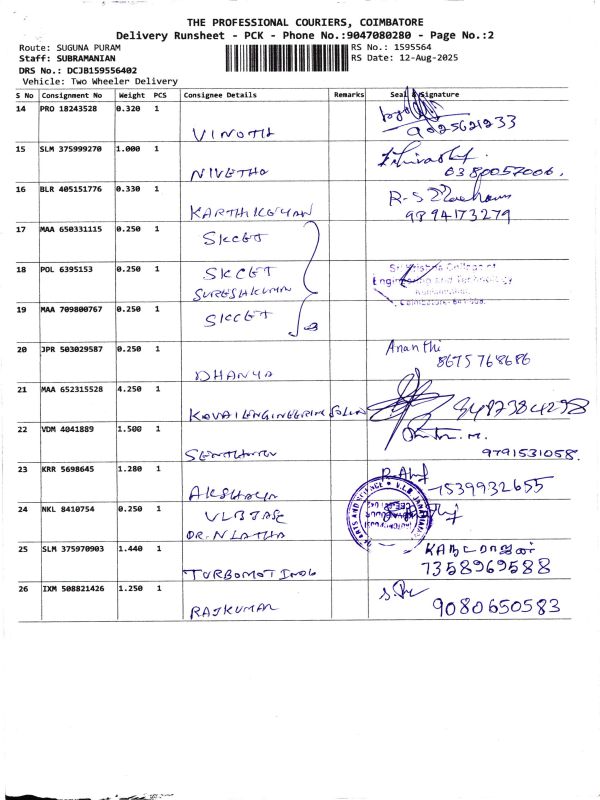 THE PROFESSIONAL COURIERS, COIMBATORE
Delivery Runsheet - PCK - Phone No.:9047080280 - Page No.:2
Route: SUGUNA PURAM RS No.: 1595564
Staff: SUBRAMANIAN RS Date: 12-Aug-2025
DRS No.: DCJB159556402
Vehicle: Two Wheeler Delivery
S No Consignment No Weight PCS Consignee Details Remarks Seal & Signature
14 PRO 18243528 0.320 1
VINOTH 9025621233
15 SLM 375999270 1.000 1
NIVETHA 6380057006.
16 BLR 405151776 0.330 1 R-S
KARTHIKEYAN 9894173279
17 MAA 650331115 0.250 1 SKCET
18 POL 6395153 0.250 1 SKCET Sri Krishna College of
SURESHKUMAR Engineering and Technology
Coimbatore- 641 008.
19 MAA 709800767 0.250 1 SKCET
20 JPR 503029587 0.250 1 Ananthi
DHANYA 8675768686
21 MAA 652315528 4.250 1
KOVAI ENGINEERING 8487384298
22 VDM 4041889 1.500 1
9791531058.
23 KRR 5698645 1.280 1
AKSHAYA 7539932655
24 NKL 8410754 0.250 1 VLBJASC
DR. N LATHA
25 SLM 375970903 1.440 1
TURBOMOT INDG 7358969588
26 IXM 508821426 1.250 1
RAJKUMAR 9080650583